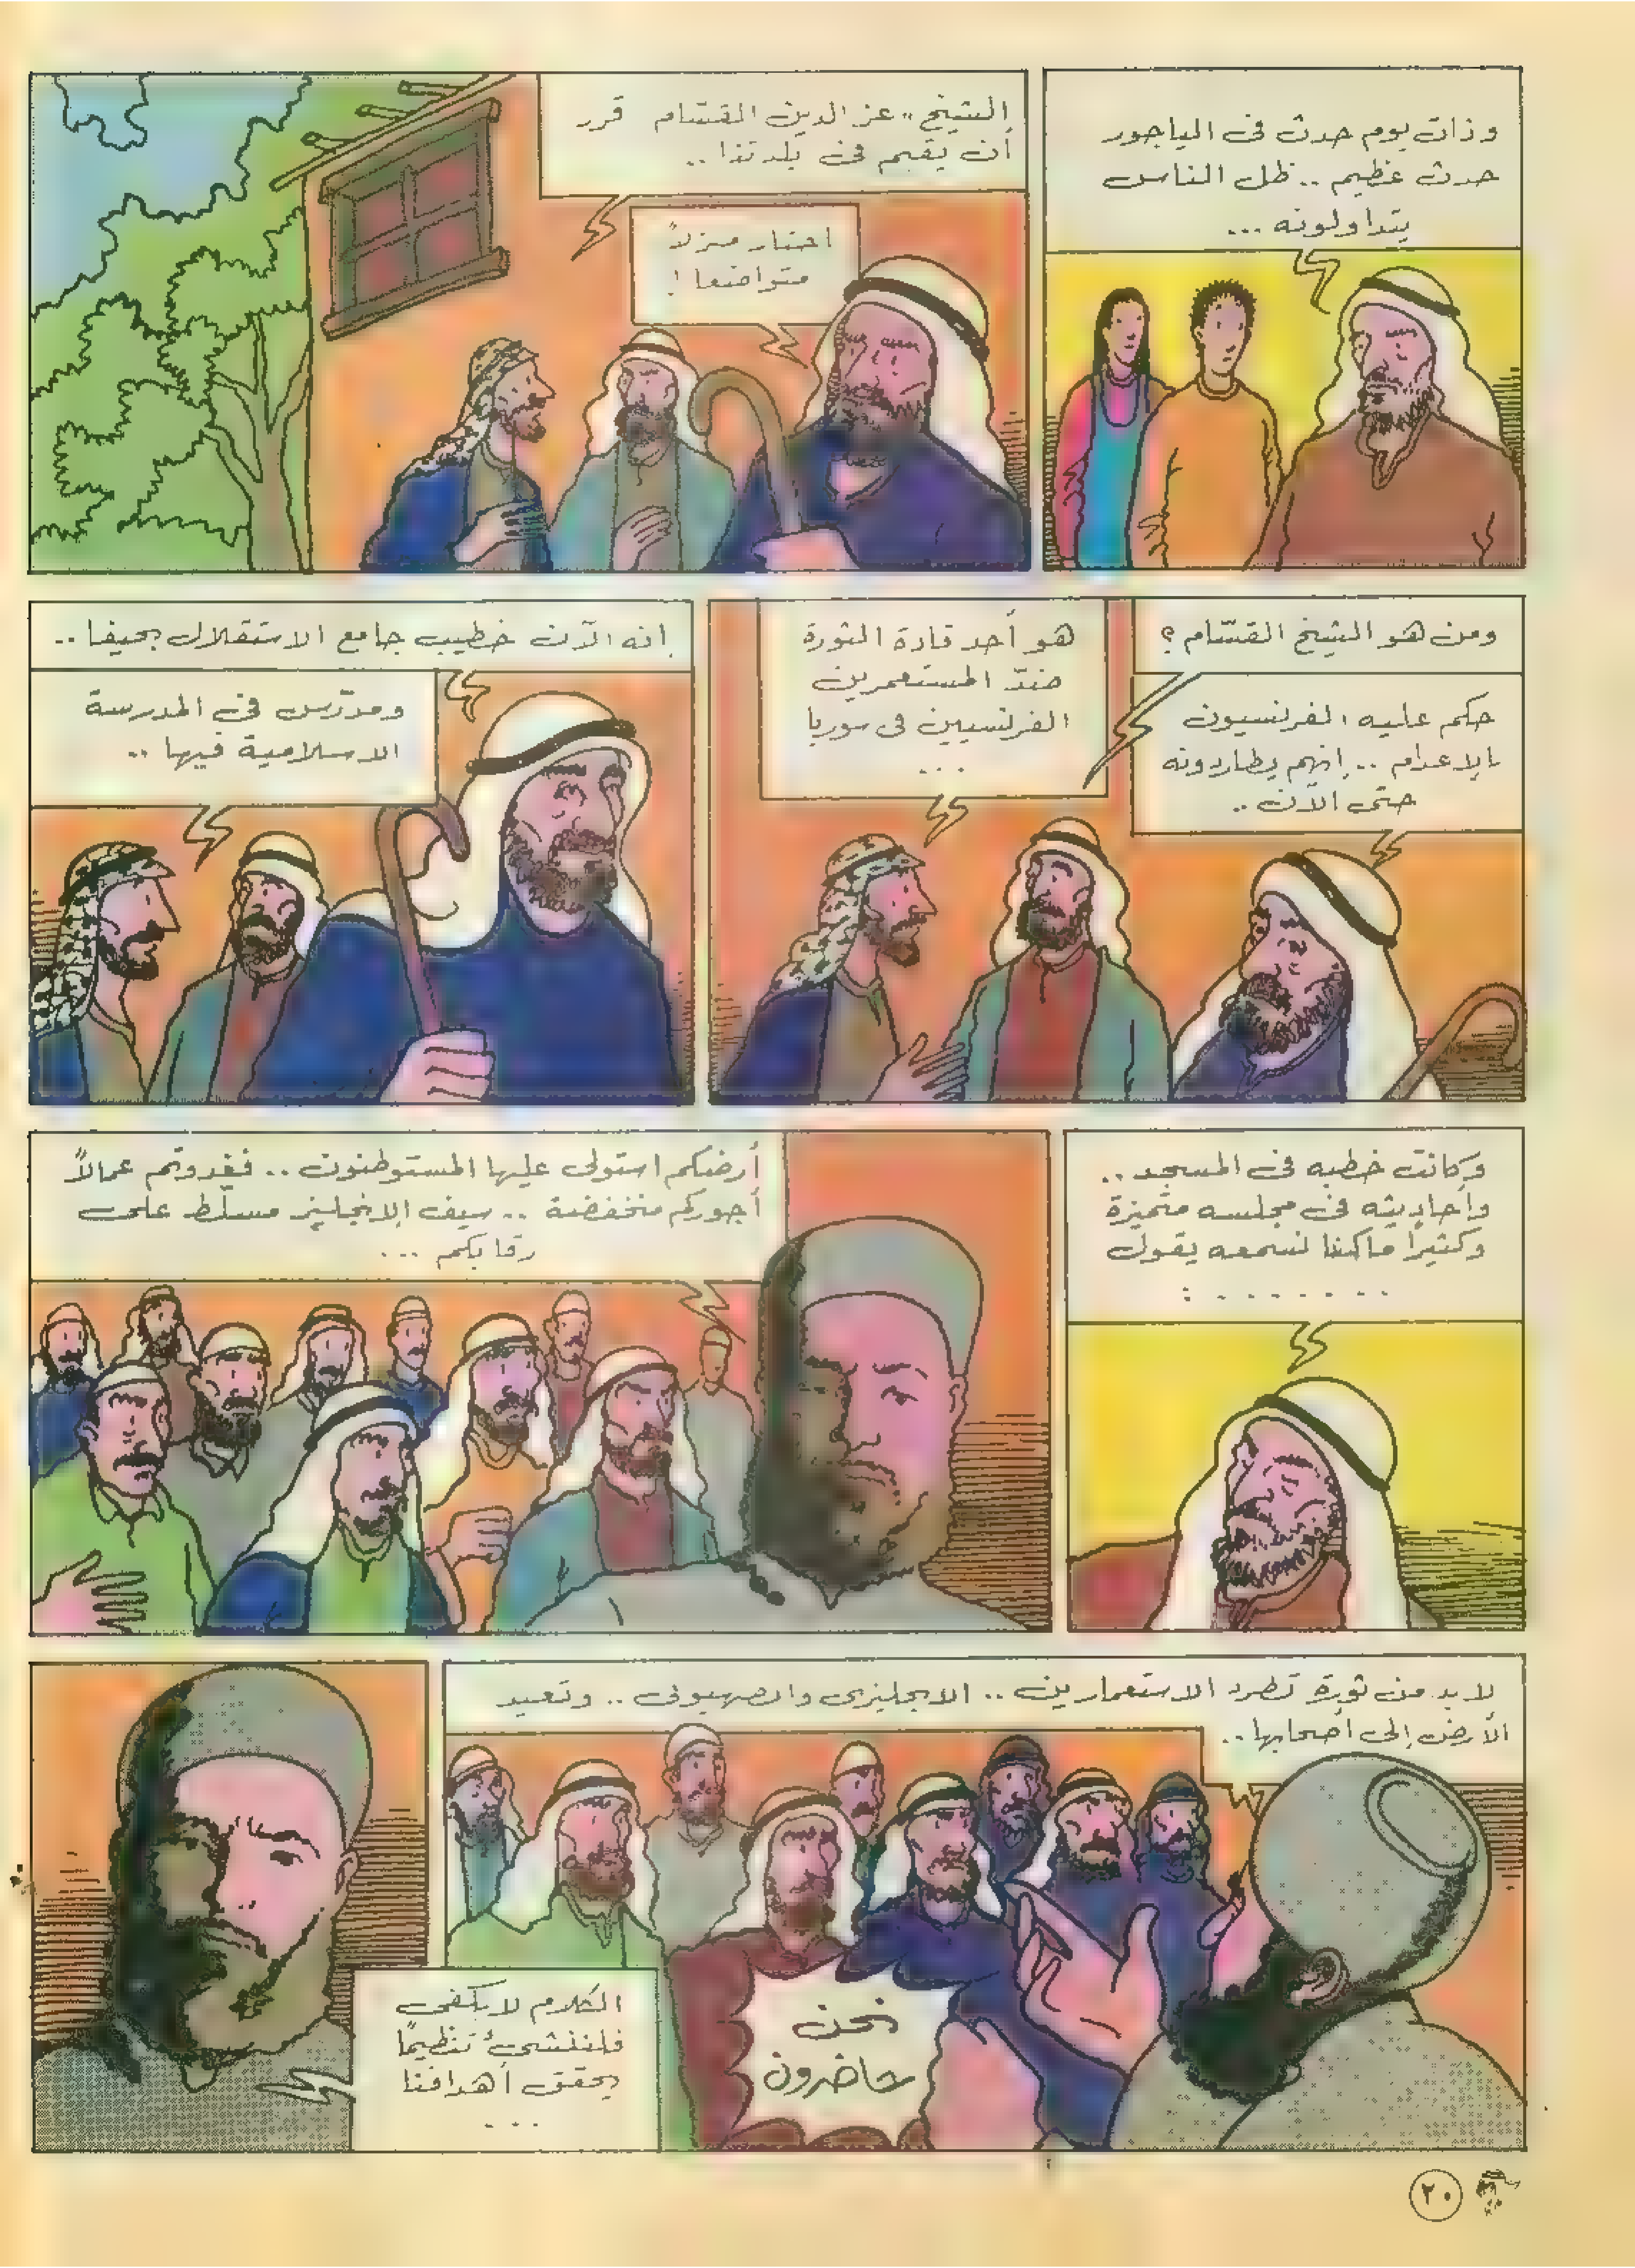 وذات يوم حدث في الياجور
حدث عظيم .. ظل الناس
يتداولونه ...
الشيخ " عز الدين القسّام قرر
أن يقيم في بلدتنا ..
اختار منزلاً
متواضعا !
ومن هو الشيخ القسّام ؟
حكم عليه الفرنسيون
بالإعدام .. إنهم يطاردونه
حتى الآن ..
هو أحد قادة الثورة
ضدّ المستعمرين
الفرنسيين في سوريا
...
إنه الآن خطيب جامع الاستقلال بحيفا ..
ومدرّس في المدرسة
الاسلامية فيها ..
وكانت خطبه في المسجد ..
وأحاديثه في مجلسه متميزة
وكثيرًا ما كنا نسمعه يقول
........ :
أرضكم استولى عليها المستوطنون .. فغدوتم عمالاً
أجوركم منخفضة .. سيف الإنجليز مسلّط على
رقابكم ...
لا بد من ثورة تطرد الاستعمارين .. الانجليزي والصهيوني .. وتعيد
الأرض إلى أصحابها ..
نحن
حاضرون
الكلام لا يكفي
فلننشئ تنظيمًا
يحقق أهدافنا
...
٢٠